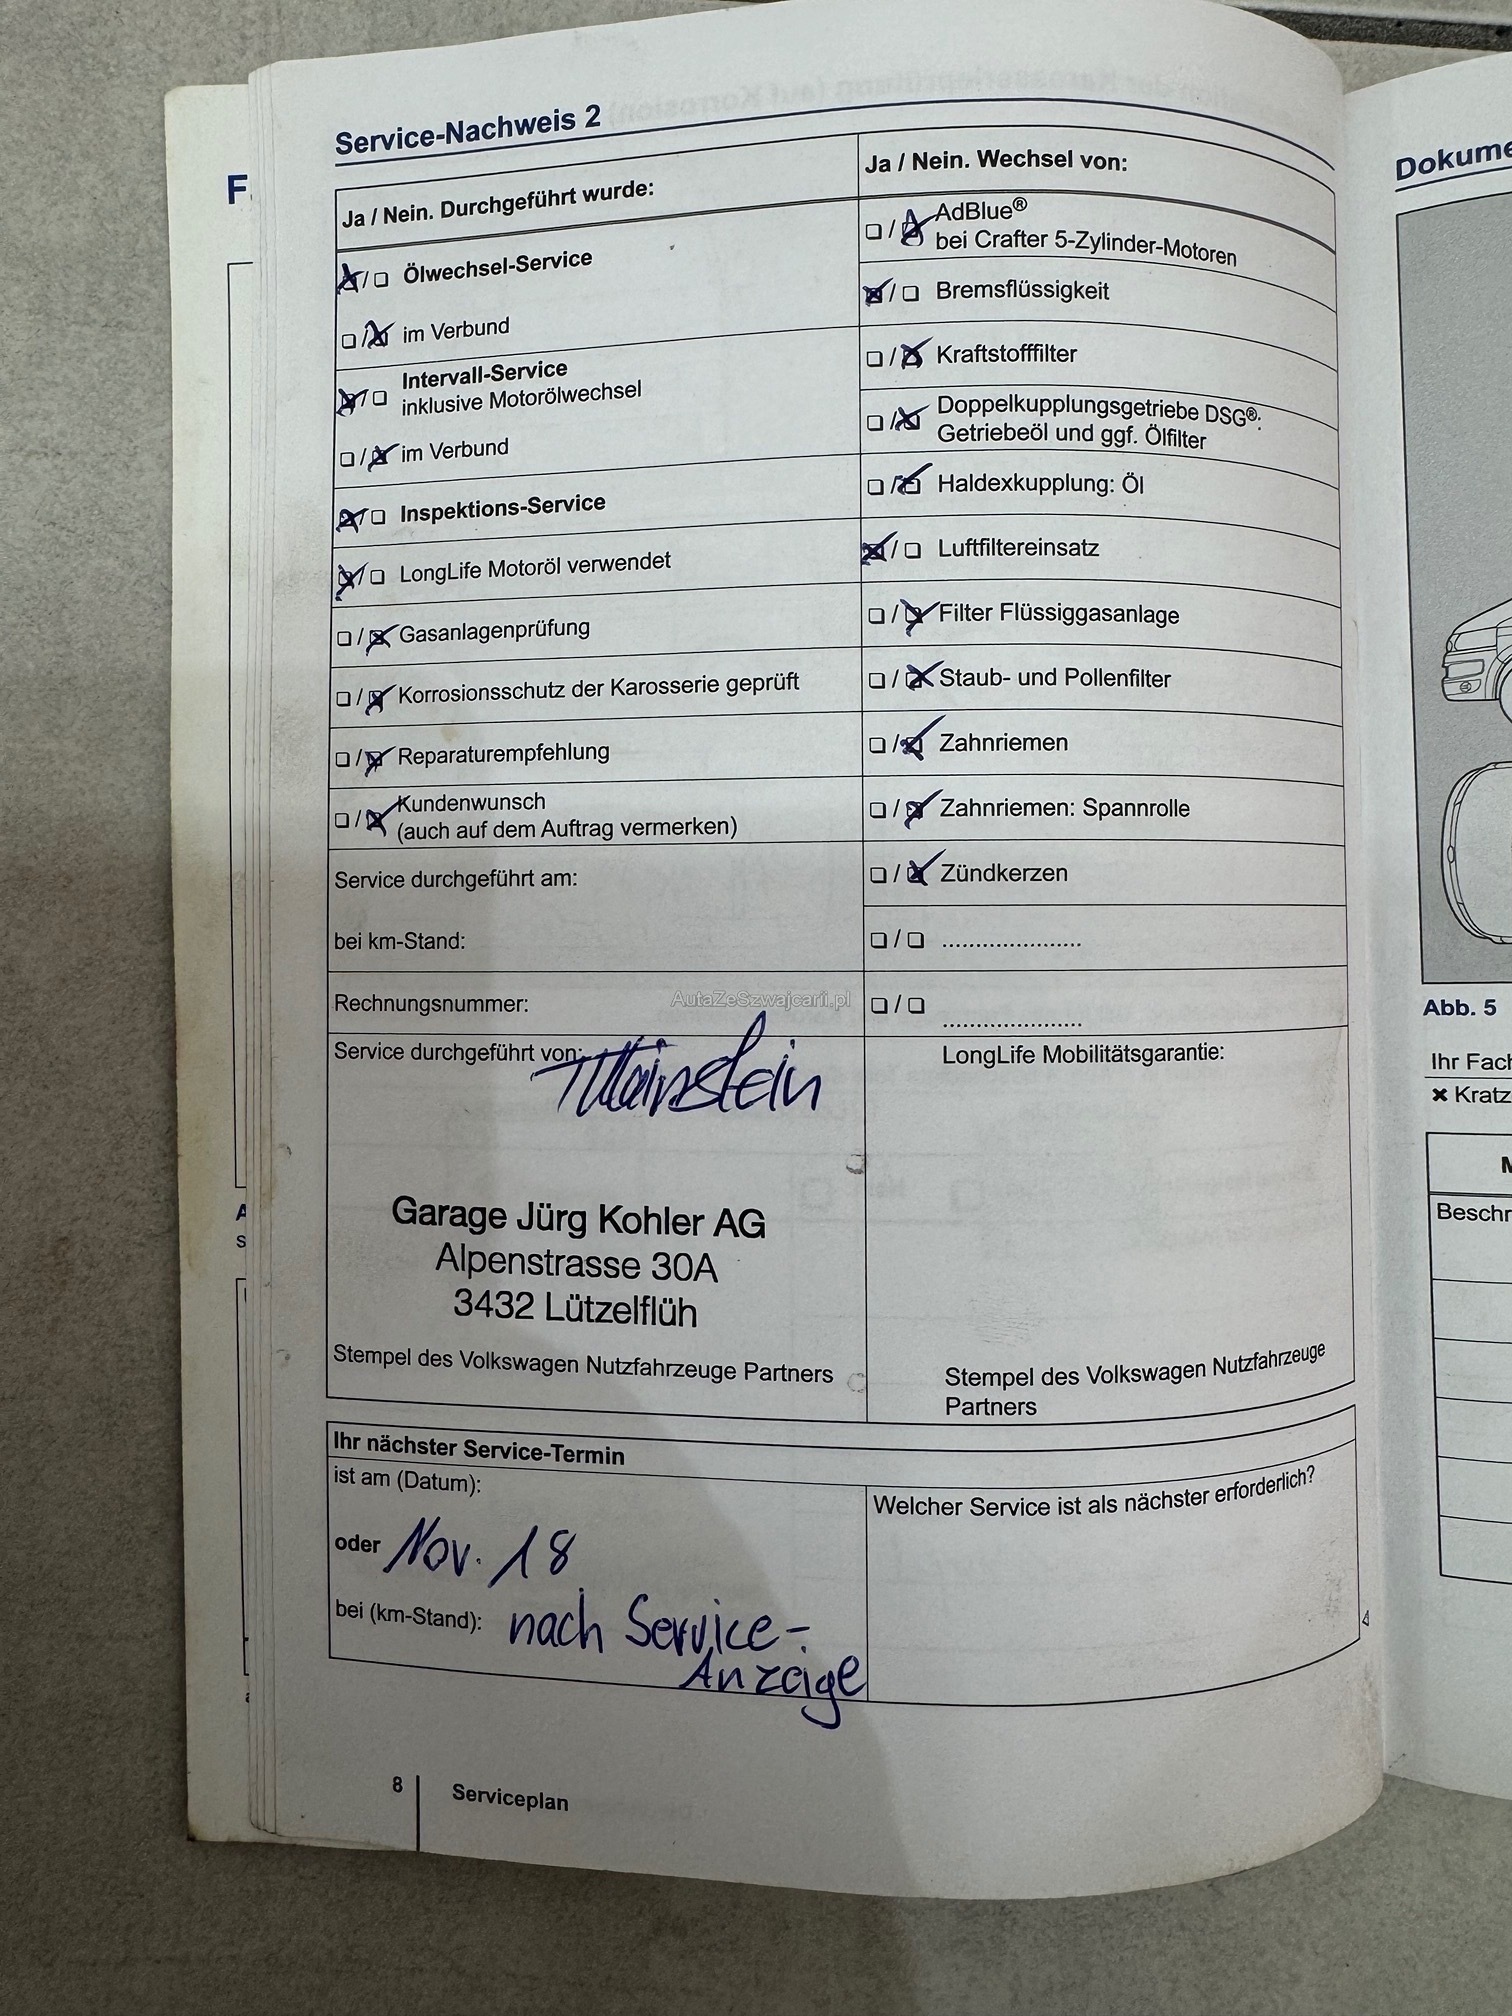 Service-Nachweis 2
Ja / Nein. Durchgeführt wurde:
Ölwechsel-Service
im Verbund
Intervall-Service
inklusive Motorölwechsel
im Verbund
Inspektions-Service
LongLife Motoröl verwendet
Gasanlagenprüfung
Korrosionsschutz der Karosserie geprüft
Reparaturempfehlung
Kundenwunsch
(auch auf dem Auftrag vermerken)
Service durchgeführt am:
bei km-Stand:
Rechnungsnummer:
Ja / Nein. Wechsel von:
AdBlue®
bei Crafter 5-Zylinder-Motoren
Bremsflüssigkeit
Kraftstofffilter
Doppelkupplungsgetriebe DSG®:
Getriebeöl und ggf. Ölfilter
Haldexkupplung: Öl
Luftfiltereinsatz
Filter Flüssiggasanlage
Staub- und Pollenfilter
Zahnriemen
Zahnriemen: Spannrolle
Zündkerzen
AutaZeSzwajcarii.pl
Service durchgeführt von:
Garage Jürg Kohler AG
Alpenstrasse 30A
3432 Lützelflüh
Stempel des Volkswagen Nutzfahrzeuge Partners
LongLife Mobilitätsgarantie:
Stempel des Volkswagen Nutzfahrzeuge
Partners
Ihr nächster Service-Termin
ist am (Datum):
oder Nov. 18
bei (km-Stand): nach Service-
Anzeige
Welcher Service ist als nächster erforderlich?
8 Serviceplan
Abb. 5